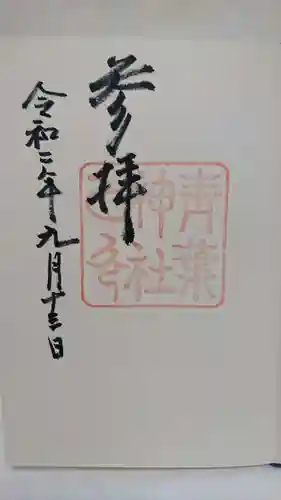 青葉
神社
参拝
令和二年九月十三日